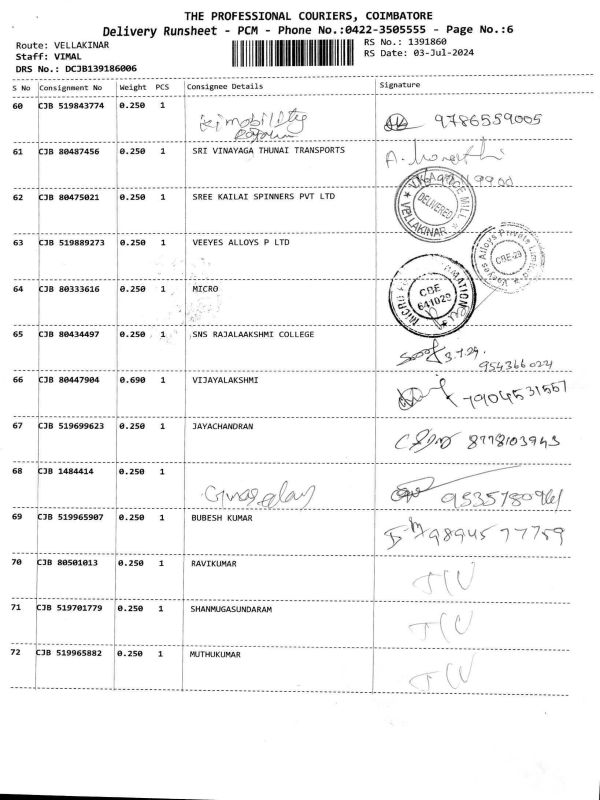 THE PROFESSIONAL COURIERS, COIMBATORE
Delivery Runsheet - PCM - Phone No.:0422-3505555 - Page No.:6
Route: VELLAKINAR
RS No.: 1391860
Staff: VIMAL
RS Date: 03-Jul-2024
DRS No.: DCJB139186006
S No Consignment No Weight PCS Consignee Details Signature
60 CJB 519843774 0.250 1 9786559005
61 CJB 80487456 0.250 1 SRI VINAYAGA THUNAI TRANSPORTS
62 CJB 80475021 0.250 1 SREE KAILAI SPINNERS PVT LTD
DELIVERED
VELLAKINAR
63 CJB 519889273 0.250 1 VEEYES ALLOYS P LTD
Veeyes Alloys Private Limited
CBE-29
64 CJB 80333616 0.250 1 MICRO
CBE
641029
65 CJB 80434497 0.250 1 SNS RAJALAAKSHMI COLLEGE
3.7.24.
66 CJB 80447904 0.690 1 VIJAYALAKSHMI 7904531557
67 CJB 519699623 0.250 1 JAYACHANDRAN 8778103943
68 CJB 1484414 0.250 1
69 CJB 519965907 0.250 1 BUBESH KUMAR
70 CJB 80501013 0.250 1 RAVIKUMAR
71 CJB 519701779 0.250 1 SHANMUGASUNDARAM
72 CJB 519965882 0.250 1 MUTHUKUMAR